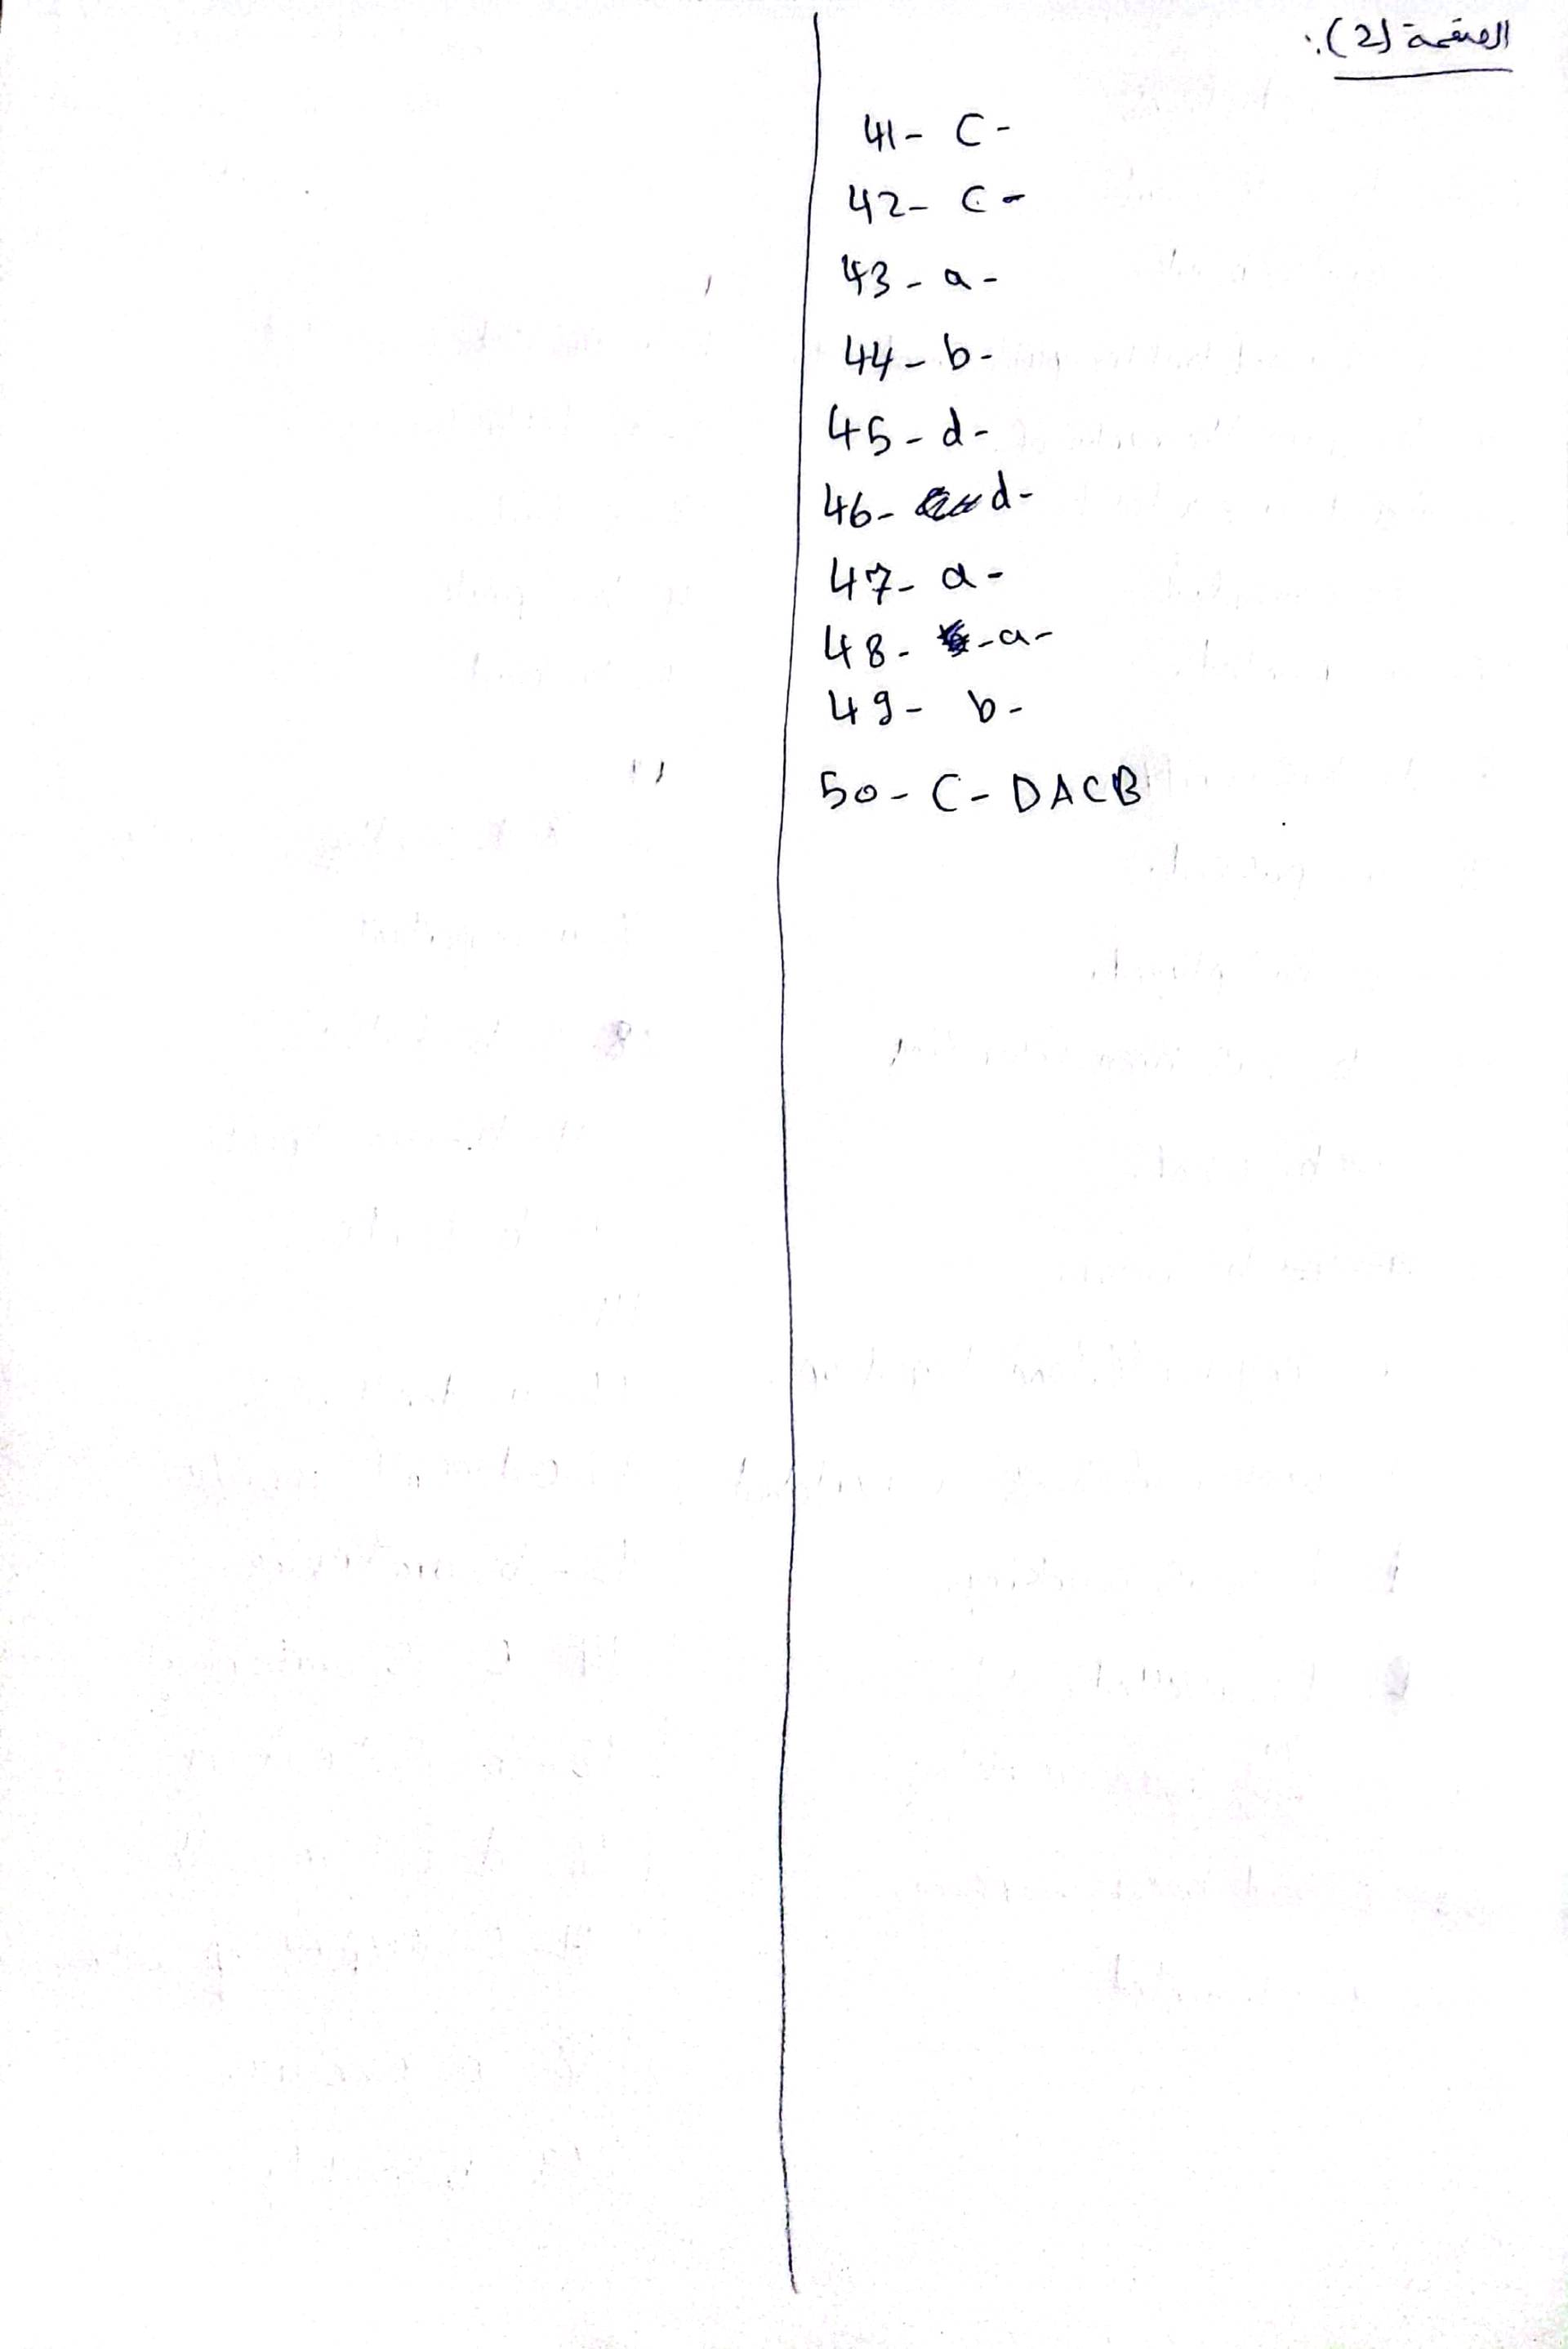 الصفحة (2):
41- C-
42- C-
43- a-
44- b-
45- d-
46- d-
47- a-
48- -a-
49- b-
50- C- DACB